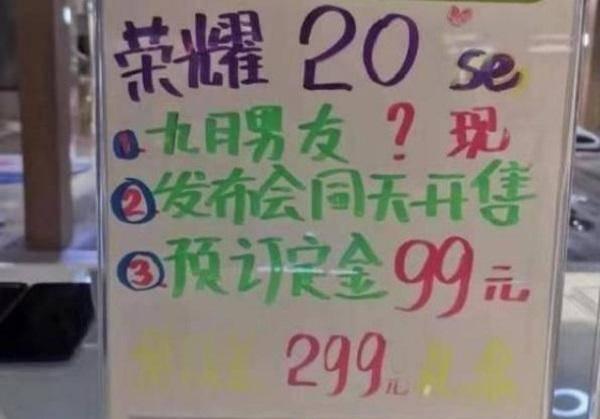 荣耀 20 se
1 九月男友 ? 现
2 发布会同天开售
3 预订定金 99 元
299元